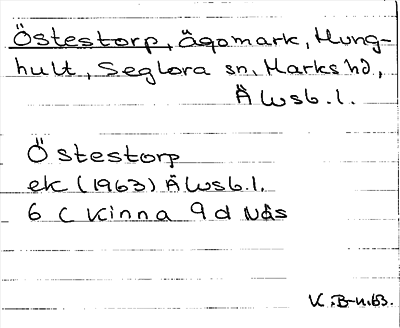 Östestorp, Ägomark, Mung-
hult, Seglora sn, Marks hd,
Älvsb. l.
Östestorp
ek (1963) Älvsb. l.
6 C Kinna 9 d NÅS
K. B-n. 63.